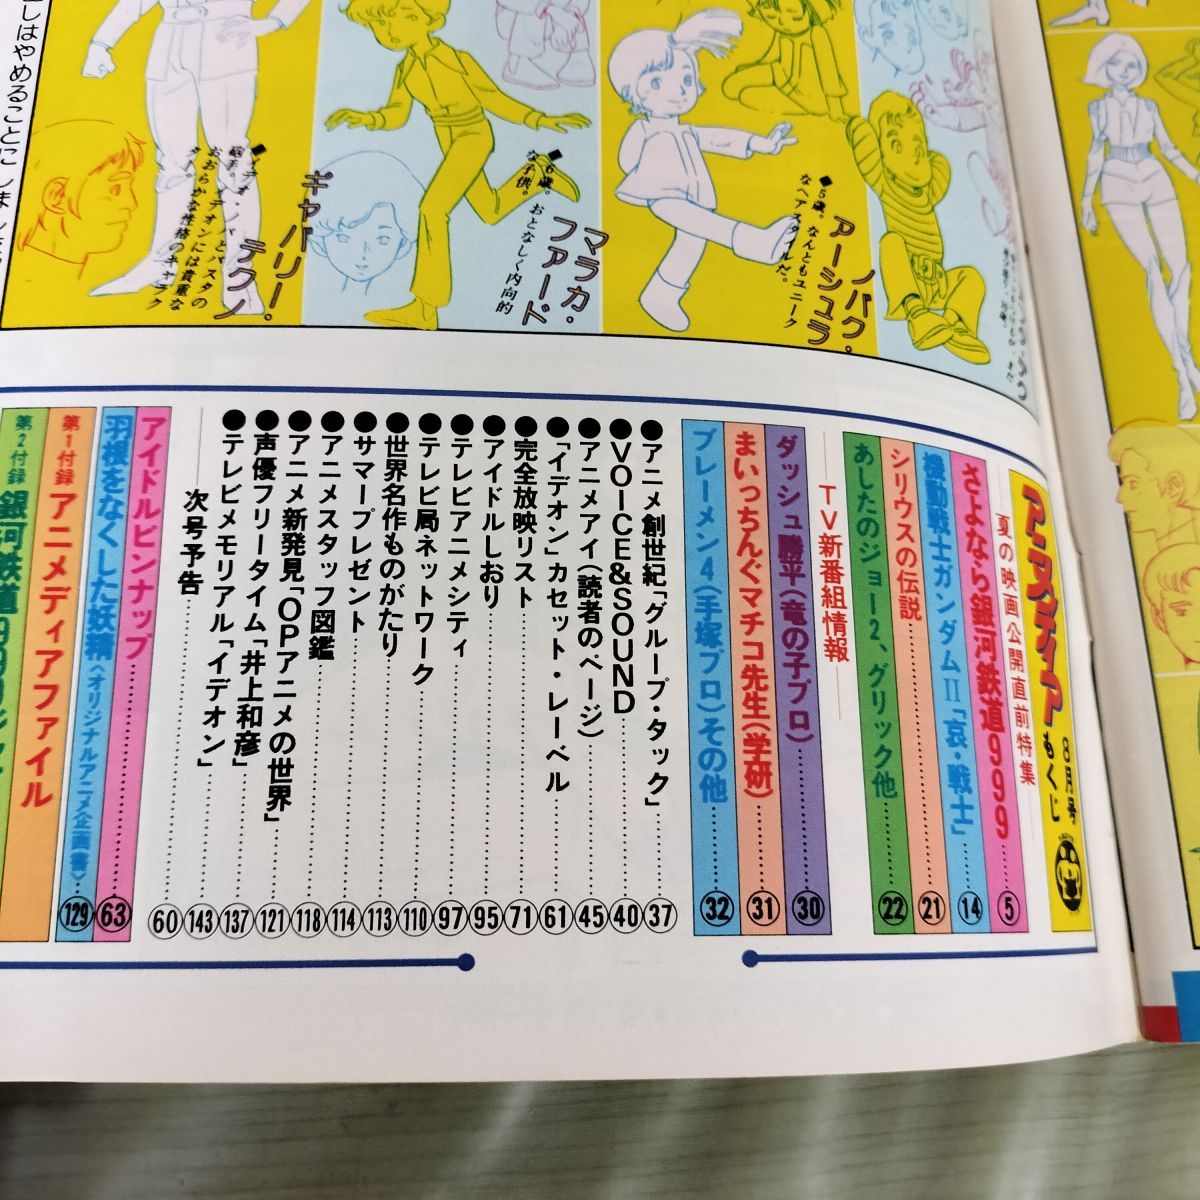 しはやめることにしまし
ギャバリー・
テクノ
マラカ・
ファード
◆6歳。おとなしく内向的
な子供。
ノバク・
アーシュラ
◆5歳。なんともユニーク
なヘアスタイルだ。
アニメディア 8月号 もくじ
夏の映画公開直前特集
さよなら銀河鉄道999……5
機動戦士ガンダムII「哀・戦士」……14
シリウスの伝説……21
あしたのジョー2、グリック他……22
TV新番組情報
ダッシュ勝平(竜の子プロ)……30
まいっちんぐマチコ先生(学研)……31
ブレーメン4(手塚プロ)その他……32
●アニメ創世紀「グループ・タック」……37
●VOICE&SOUND……40
●アニメアイ(読者のページ)……45
●「イデオン」カセット・レーベル……61
●完全放映リスト……71
●アイドルしおり……95
●テレビアニメシティ……97
●テレビ局ネットワーク……110
●世界名作ものがたり……113
●サマープレゼント……114
●アニメスタッフ図鑑……118
●アニメ新発見「OPアニメの世界」……121
●声優フリータイム「井上和彦」……137
●テレビメモリアル「イデオン」……143
次号予告……60
アイドルピンナップ……63
羽根をなくした妖精〈オリジナルアニメ企画書〉……129
第1付録 アニメディアファイル
第2付録 銀河鉄道999